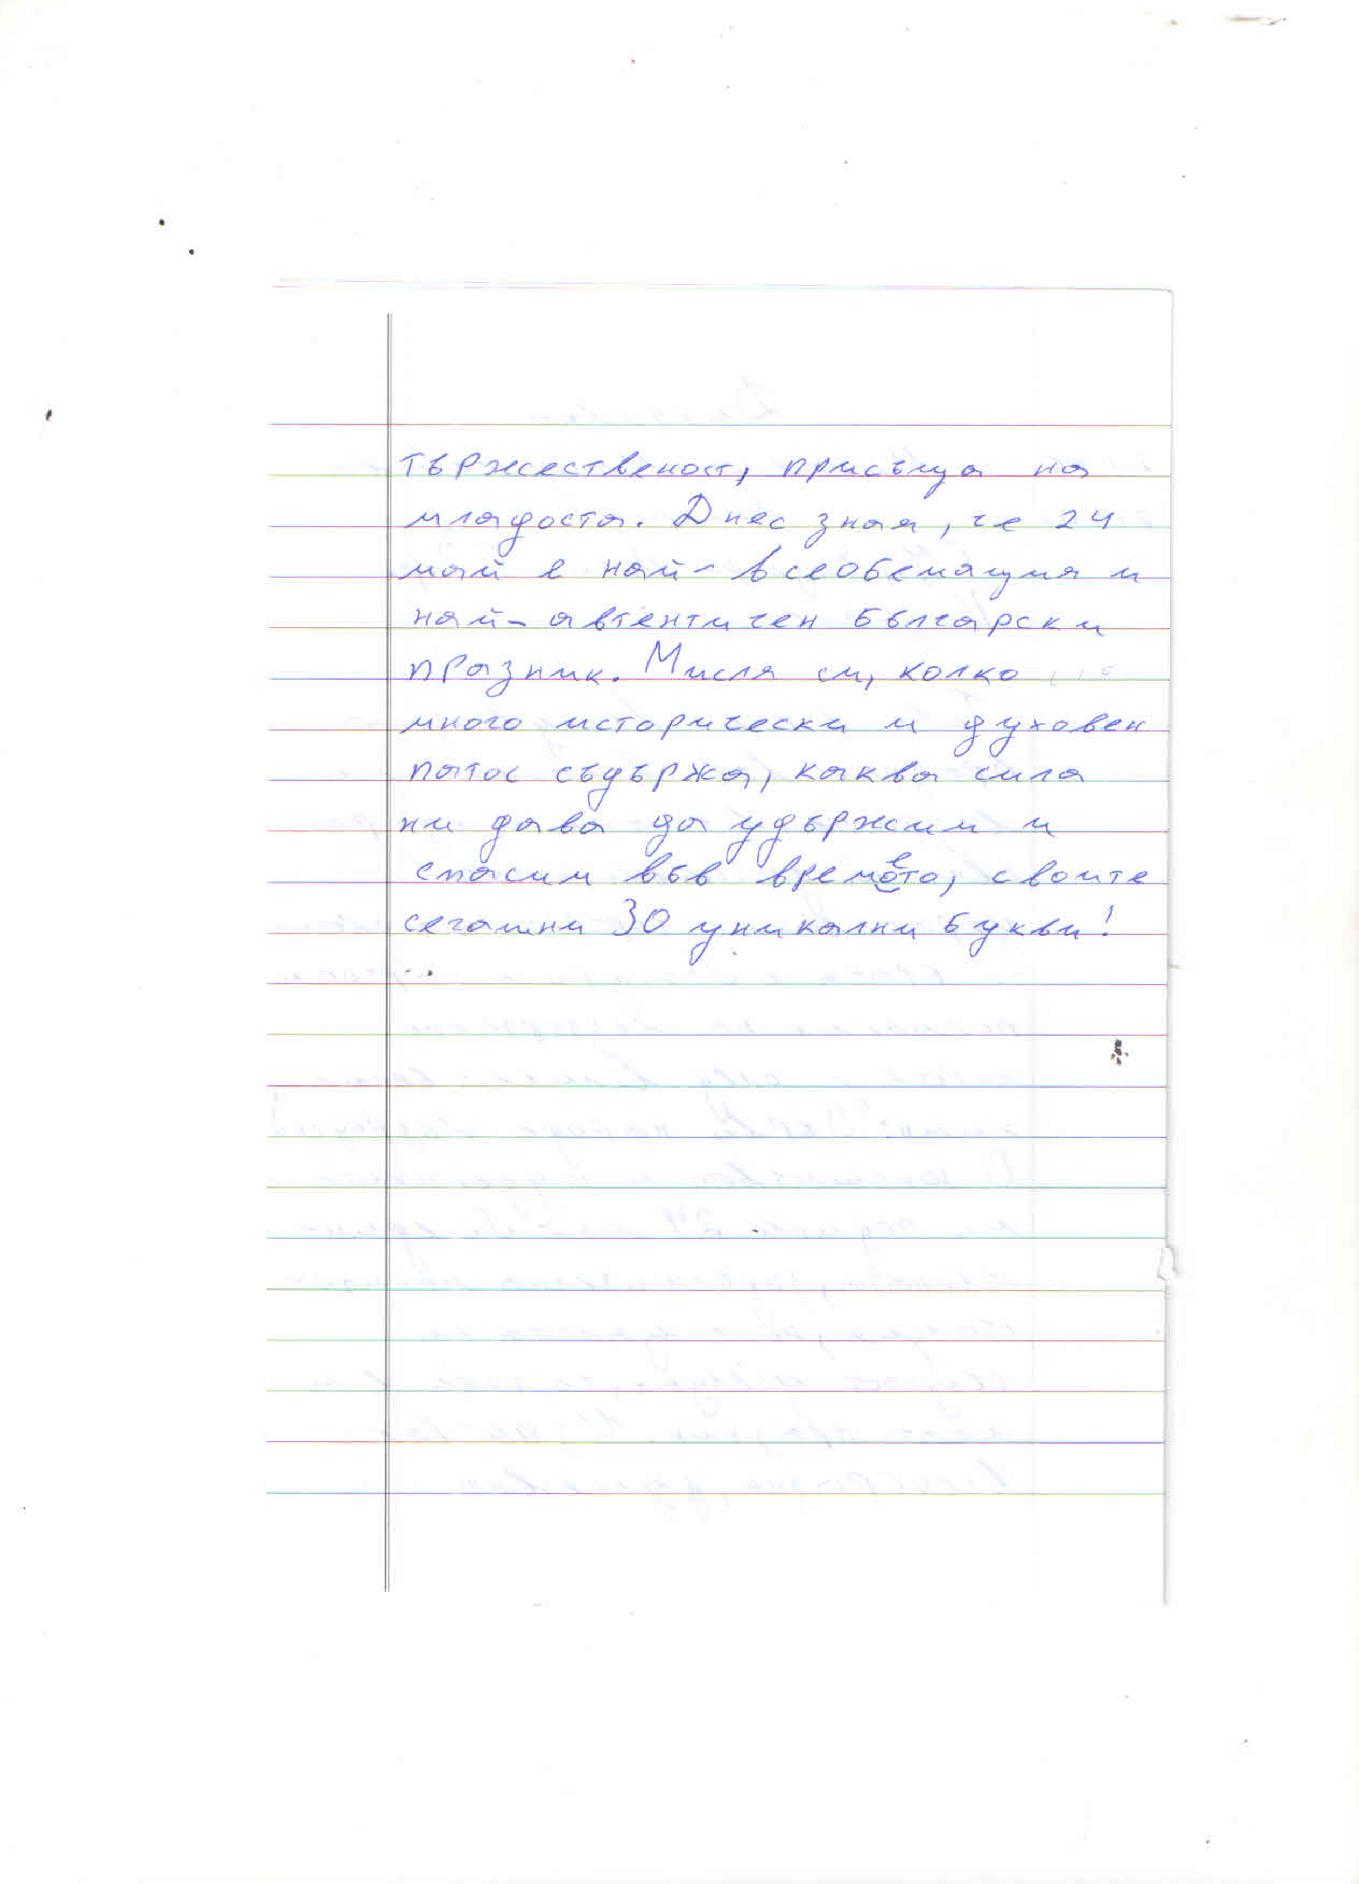 тържественост, присъща на
младостa. Днес зная, че 24
май е най-всеобемащия и
най-автентичен български
празник. Мисля си, колко
много исторически и духовен
патос съдържа, каква сила
ни дава да удържим и
спасим във времето, своите
сегашни 30 уникални букви!